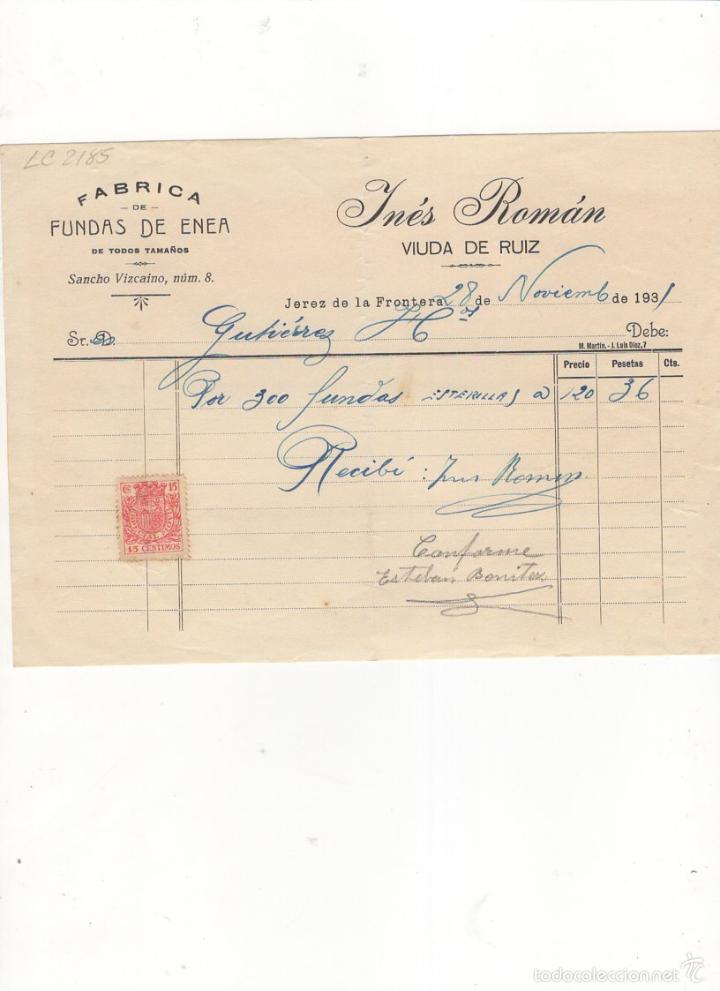 LC 2185
FABRICA
- DE -
FUNDAS DE ENEA
DE TODOS TAMAÑOS
Sancho Vizcaino, núm. 8.
Inés Román
VIUDA DE RUIZ
Jerez de la Frontera 28 de Noviemb de 1931
Sr. D. Gutiérrez Hos Debe:
M. Martín. - J. Luis Díez, 7
Precio Pesetas Cts.
Por 300 fundas ESTERILLAS a 120 36
Recibí: Ines Roman
15
15 CENTIMOS
Conforme
Esteban Bonitez
todocoleccion.net